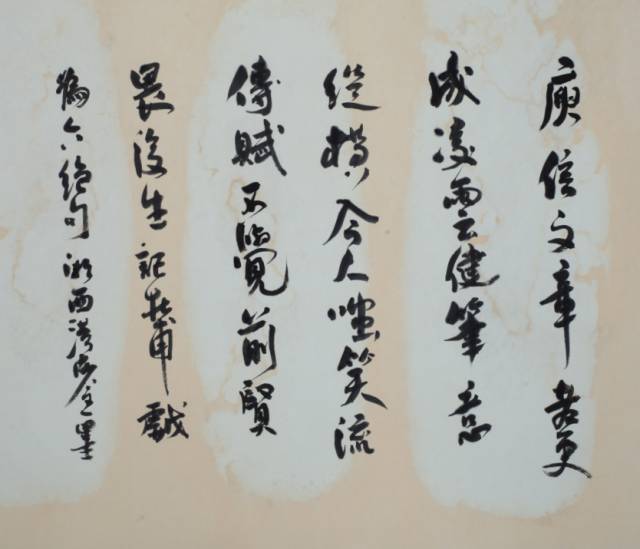 庾信文章老更
成凌雲健筆意
縱橫今人嗤笑流
傳賦不覺前賢
畏後生記杜甫戲
為六絕句湘西墨